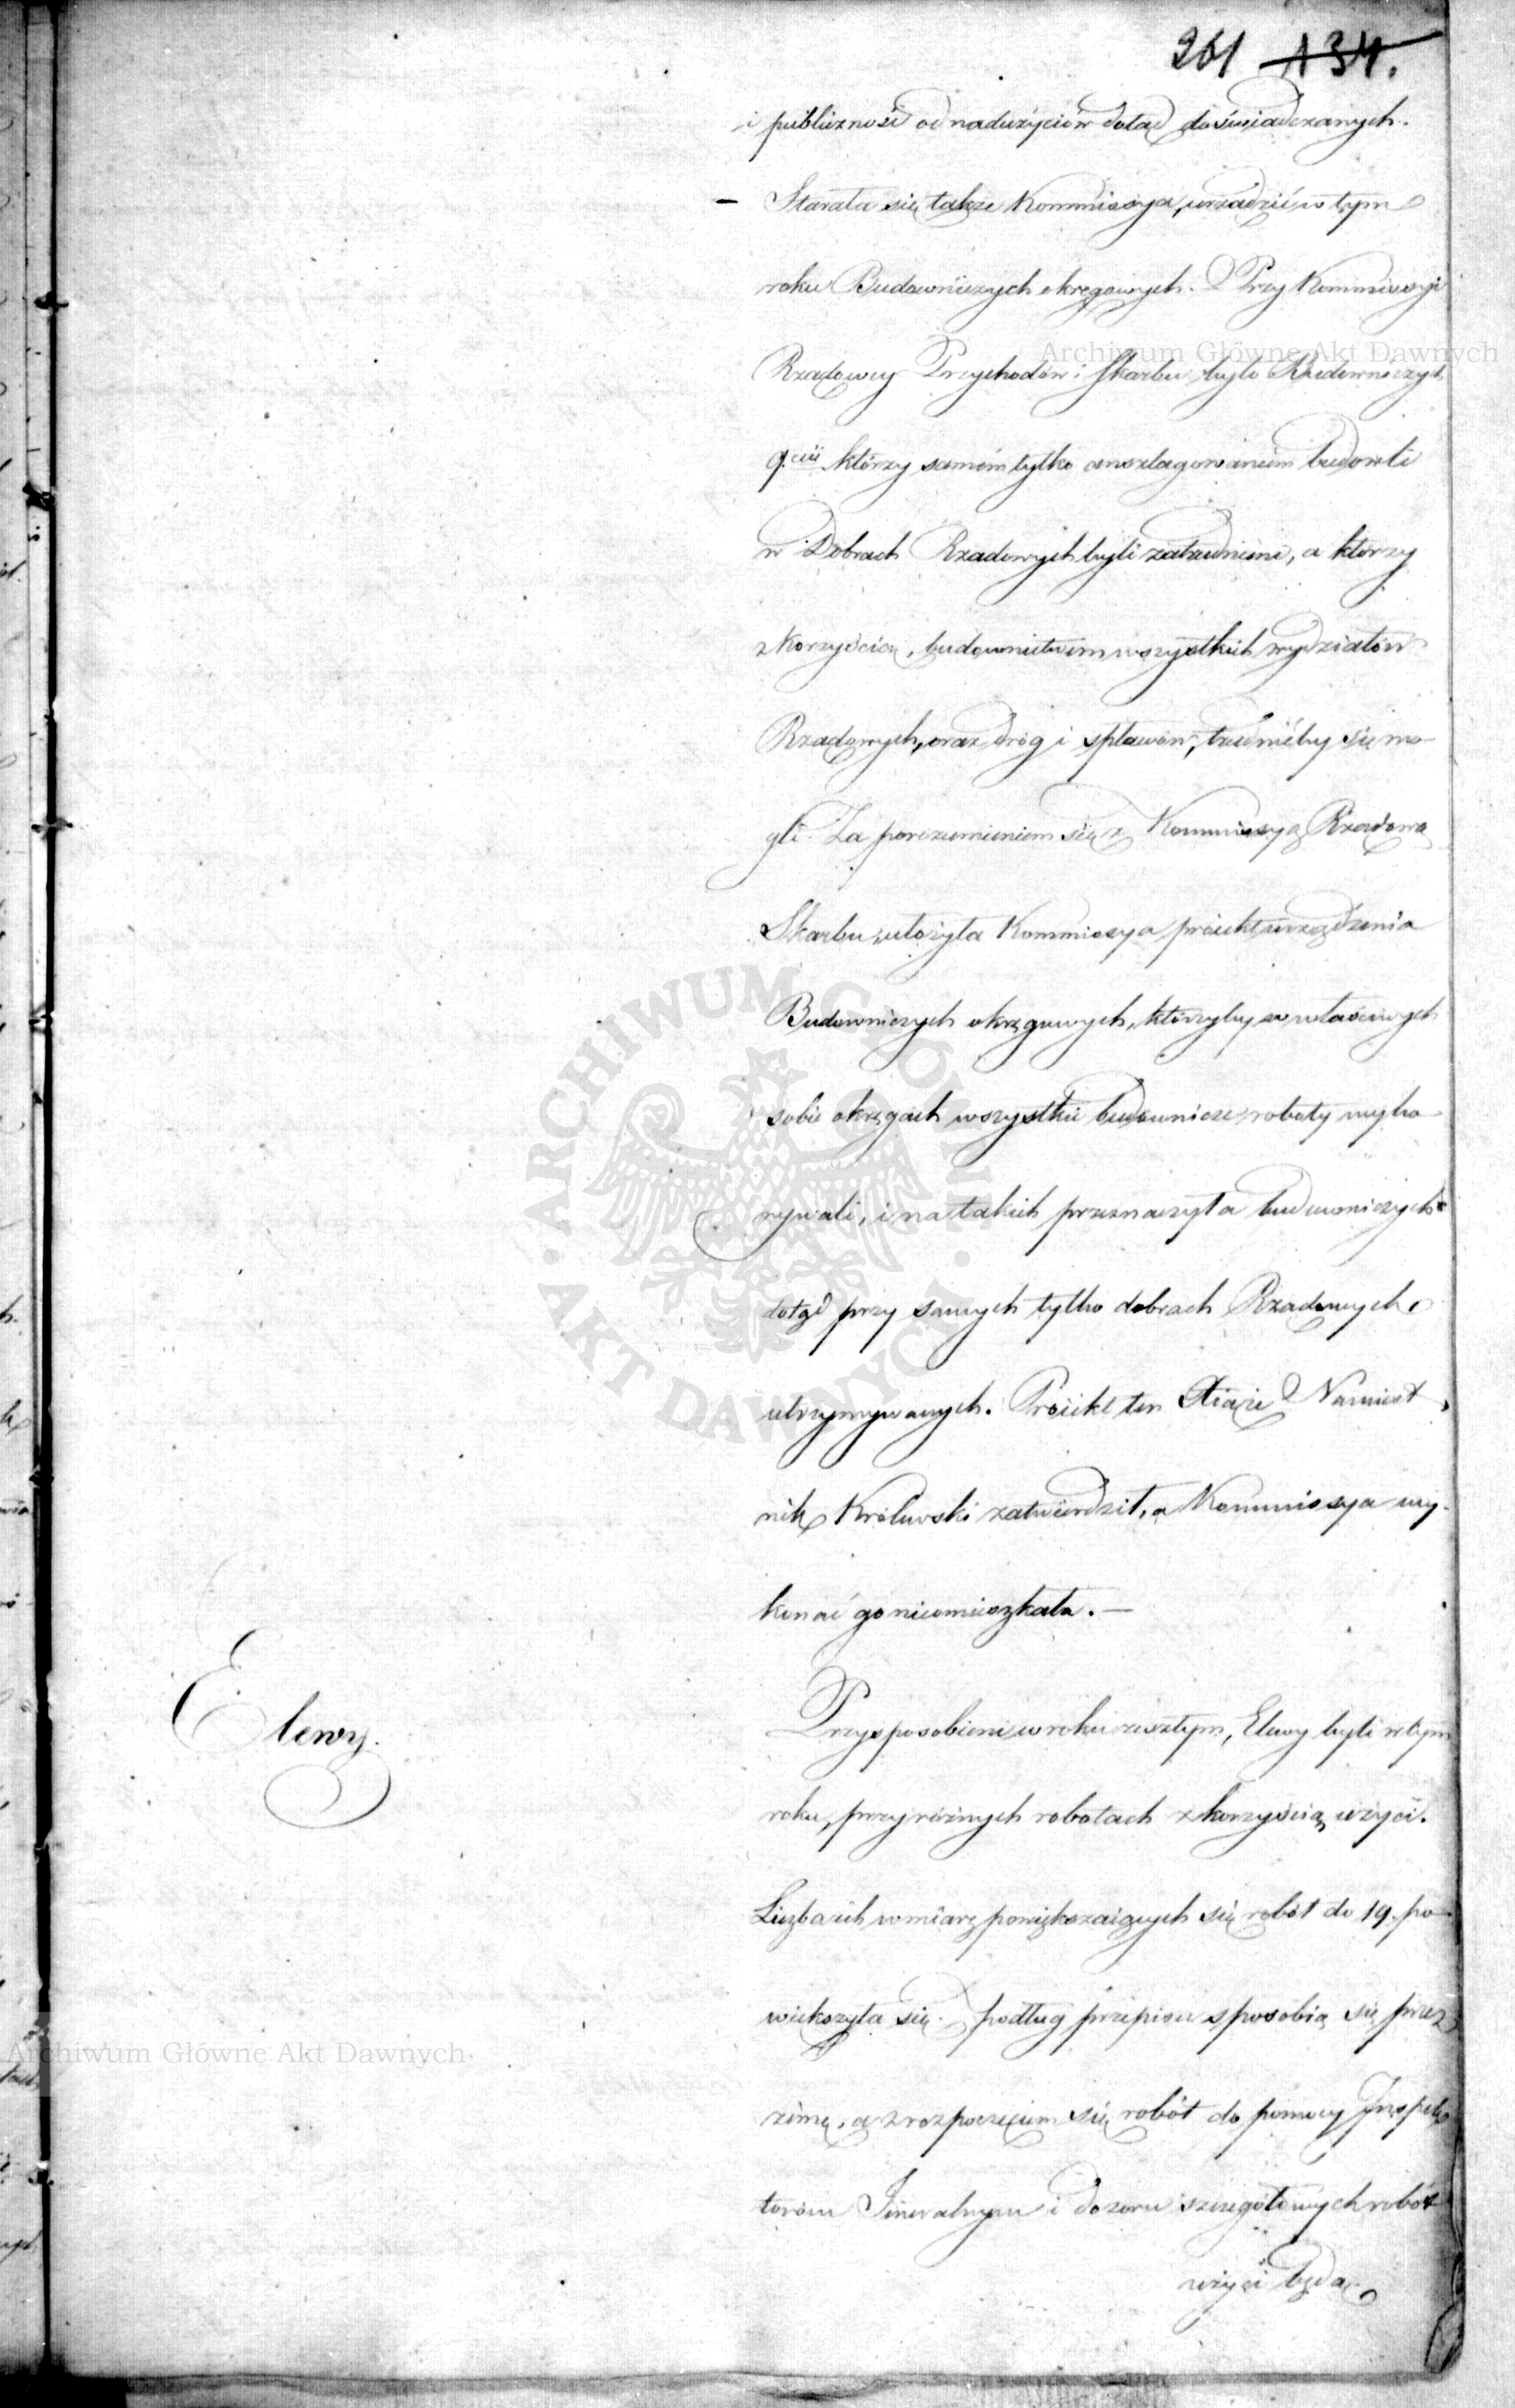 261 134.
i publiczności od nadużyciów dotąd doświadczanych.
– Starała się także Kommissya, urządzić w tym
roku Budowniczych okręgowych. Przy Kommissyi
Rządowey Przychodów i Skarbu było Budowniczych
9.ciu którzy samem tylko anszlagowaniem budowli
w Dobrach Rządowych byli zatrudnieni, a którzy
z korzyścią, budownictwem wszystkich wydziałów
Rządowych, oraz dróg i spławów, trudnićby się mo-
gli. Za porozumieniem się z Kommissyą Rządową
Skarbu, ułożyła Kommissya proiekt urządzenia
Budowniczych okręgowych, którzyby w właściwych
sobie okręgach wszystkie budownicze roboty wyko-
nywali, i na takich przeznaczyła budowniczych
dotąd przy samych tylko dobrach Rządowych
utrzymywanych. Proiekt ten Xiąże Namiest-
nik Królewski zatwierdził, a Kommissya wy-
konać go nieomieszkała. —
Elewy.
Przysposobieni w roku zeszłym, Elewy byli w tym
roku, przy różnych robotach z korzyścią użyci.
Liczba ich w miarę powiększaiących się robót do 19. po-
większyła się. podług przepisu sposobią się przez
zimę, a z rozpoczęciem się robót do pomocy Inspek-
torom Jeneralnym i dozoru szczegółowych robót
użyci będą
Archiwum Główne Akt Dawnych
Archiwum Główne Akt Dawnych
ARCHIWUM GŁÓWNE AKT DAWNYCH